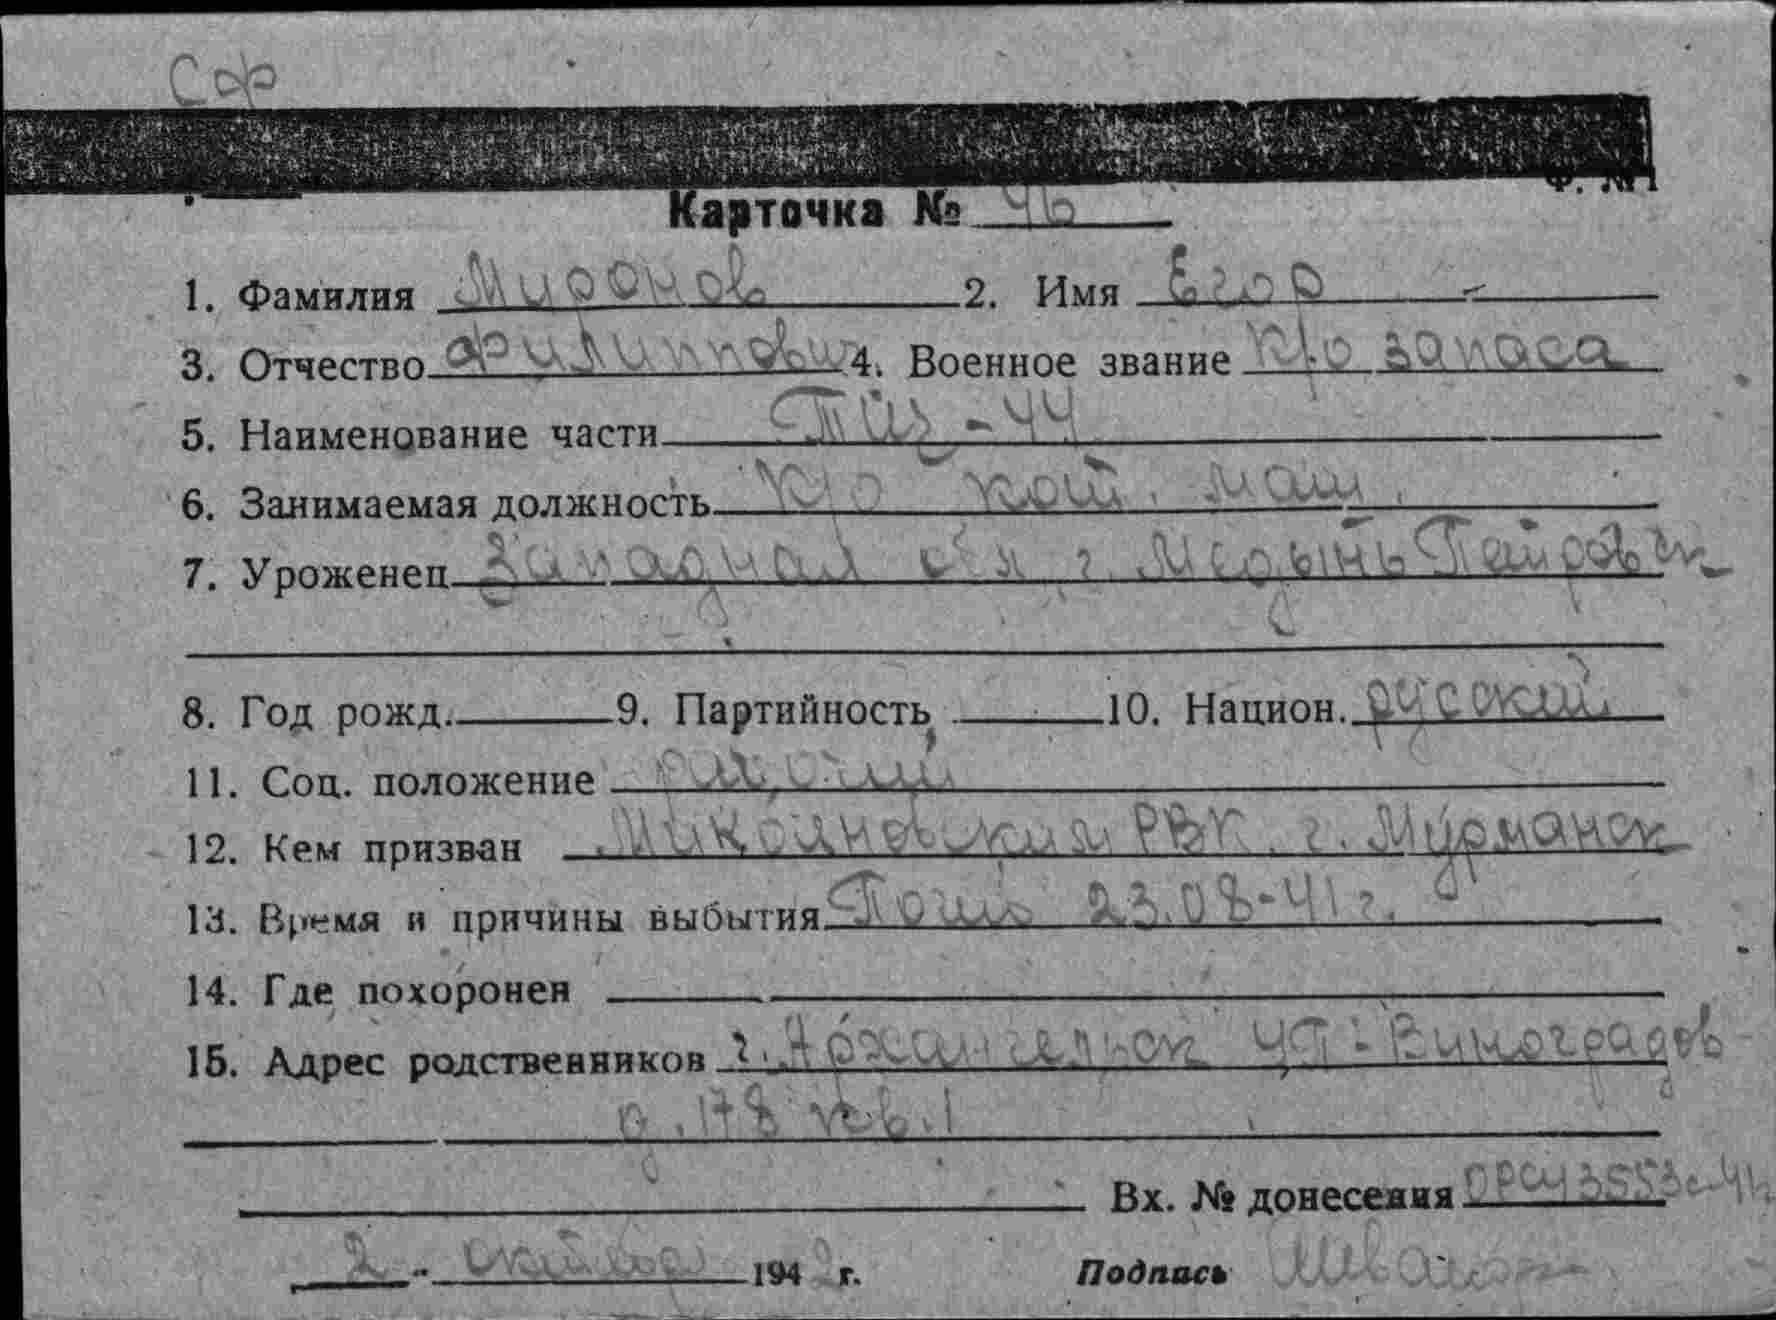 Сф
Ф. №1
Карточка № 46
1. Фамилия Миронов 2. Имя Егор
3. Отчество Филиппович 4. Военное звание к/ф запаса
5. Наименование части Тщ-44
6. Занимаемая должность к/о кот. маш.
7. Уроженец Западная обл г. Медынь Петровск
8. Год рожд. 9. Партийность 10. Национ. русский
11. Соц. положение рабочий
12. Кем призван Микояновским РВК. г. Мурманск
13. Время и причины выбытия Погиб 23.08-41г.
14. Где похоронен
15. Адрес родственников г. Архангельск ул-Виноградов
д. 178 кв. 1
Вх. № донесения ОРСЧ 3553с-41
2 - октября 1942 г. Подпись